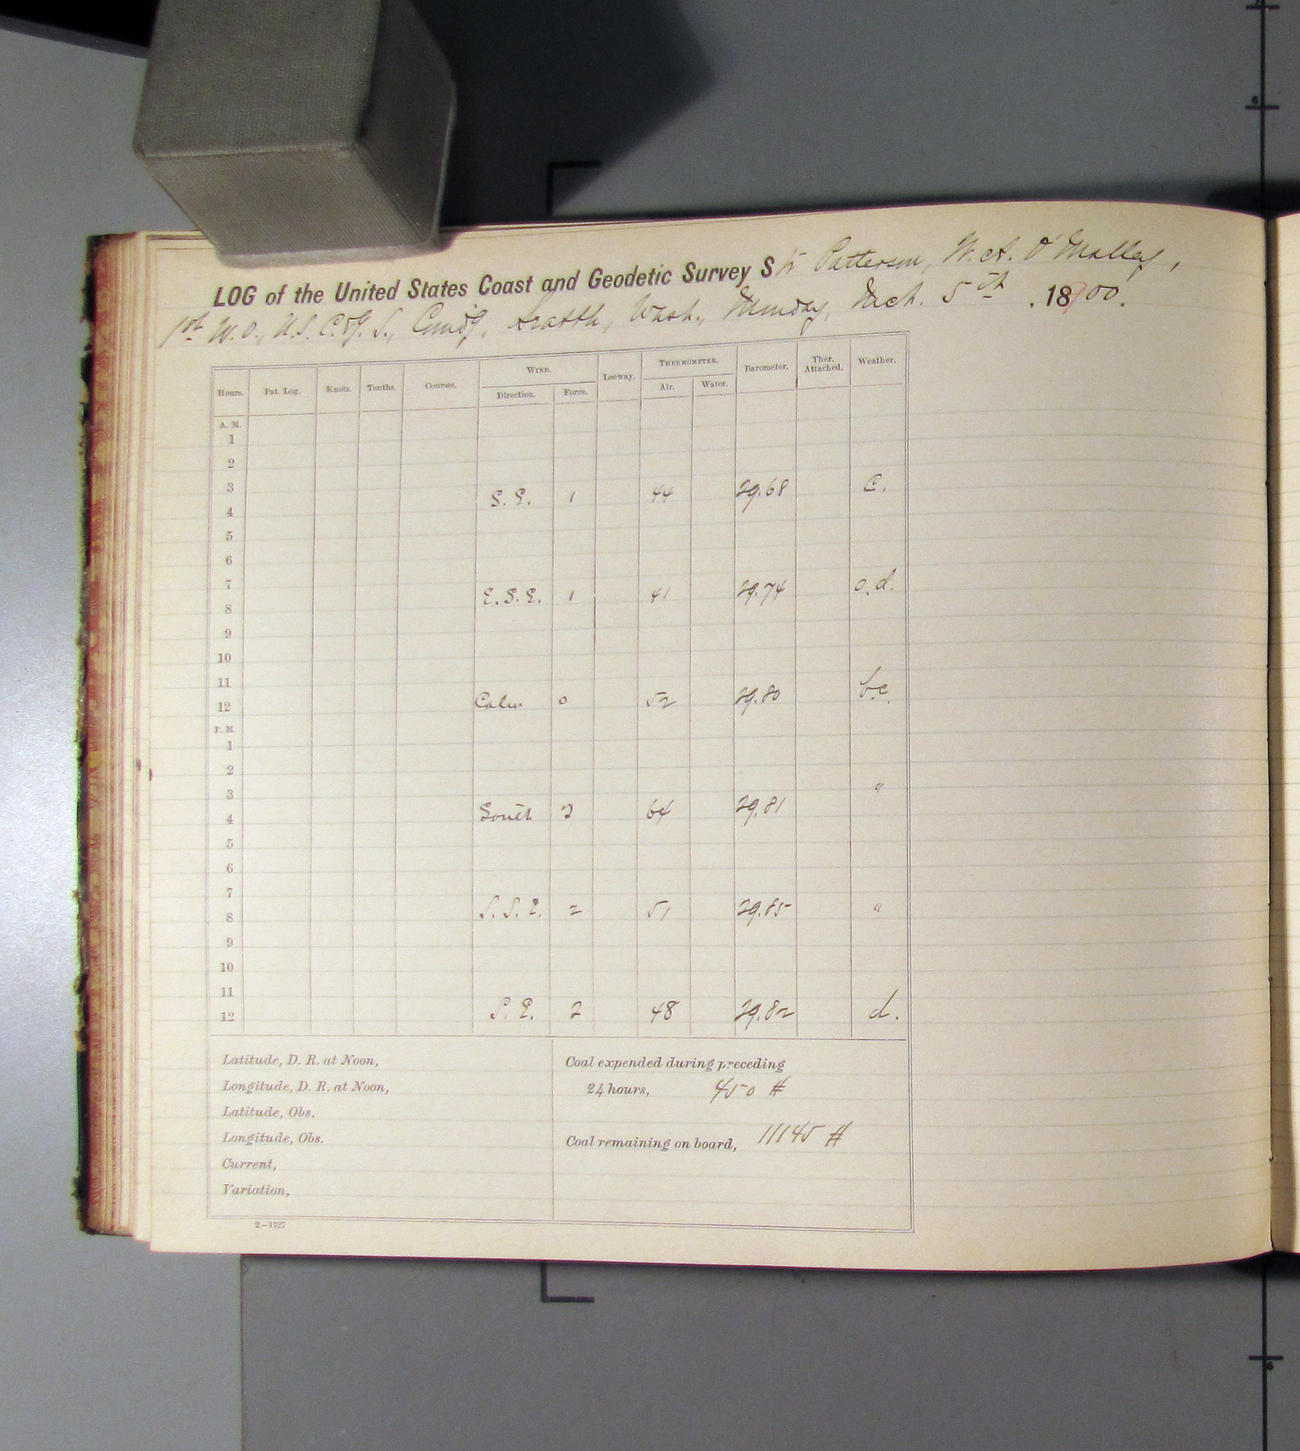 LOG of the United States Coast and Geodetic Survey Str Patterson, W. A. O'Malley,
1st W.O., U.S. C. & G. S., Comdg, Seattle, Wash., Monday, Mch. 5th, 1900.
Hours. Pat. Log. Knots. Tenths. Courses. WIND. Leeway. THERMOMETER. Barometer. Ther. Attached. Weather.
Direction. Force. Air. Water.
A. M.
1
2
3
4 S.E. 1 44 29.68 c.
5
6
7
8 E.S.E. 1 41 29.74 o.d.
9
10
11
12 Calm 0 52 29.80 b.c.
P. M.
1
2
3 "
4 South 2 64 29.81
5
6
7
8 S.S.E. 2 51 29.85 "
9
10
11
12 S.E. 2 48 29.82 d.
Latitude, D. R. at Noon,
Longitude, D. R. at Noon,
Latitude, Obs.
Longitude, Obs.
Current,
Variation,
Coal expended during preceding
24 hours, 450 #
Coal remaining on board, 11145 #
2—1727